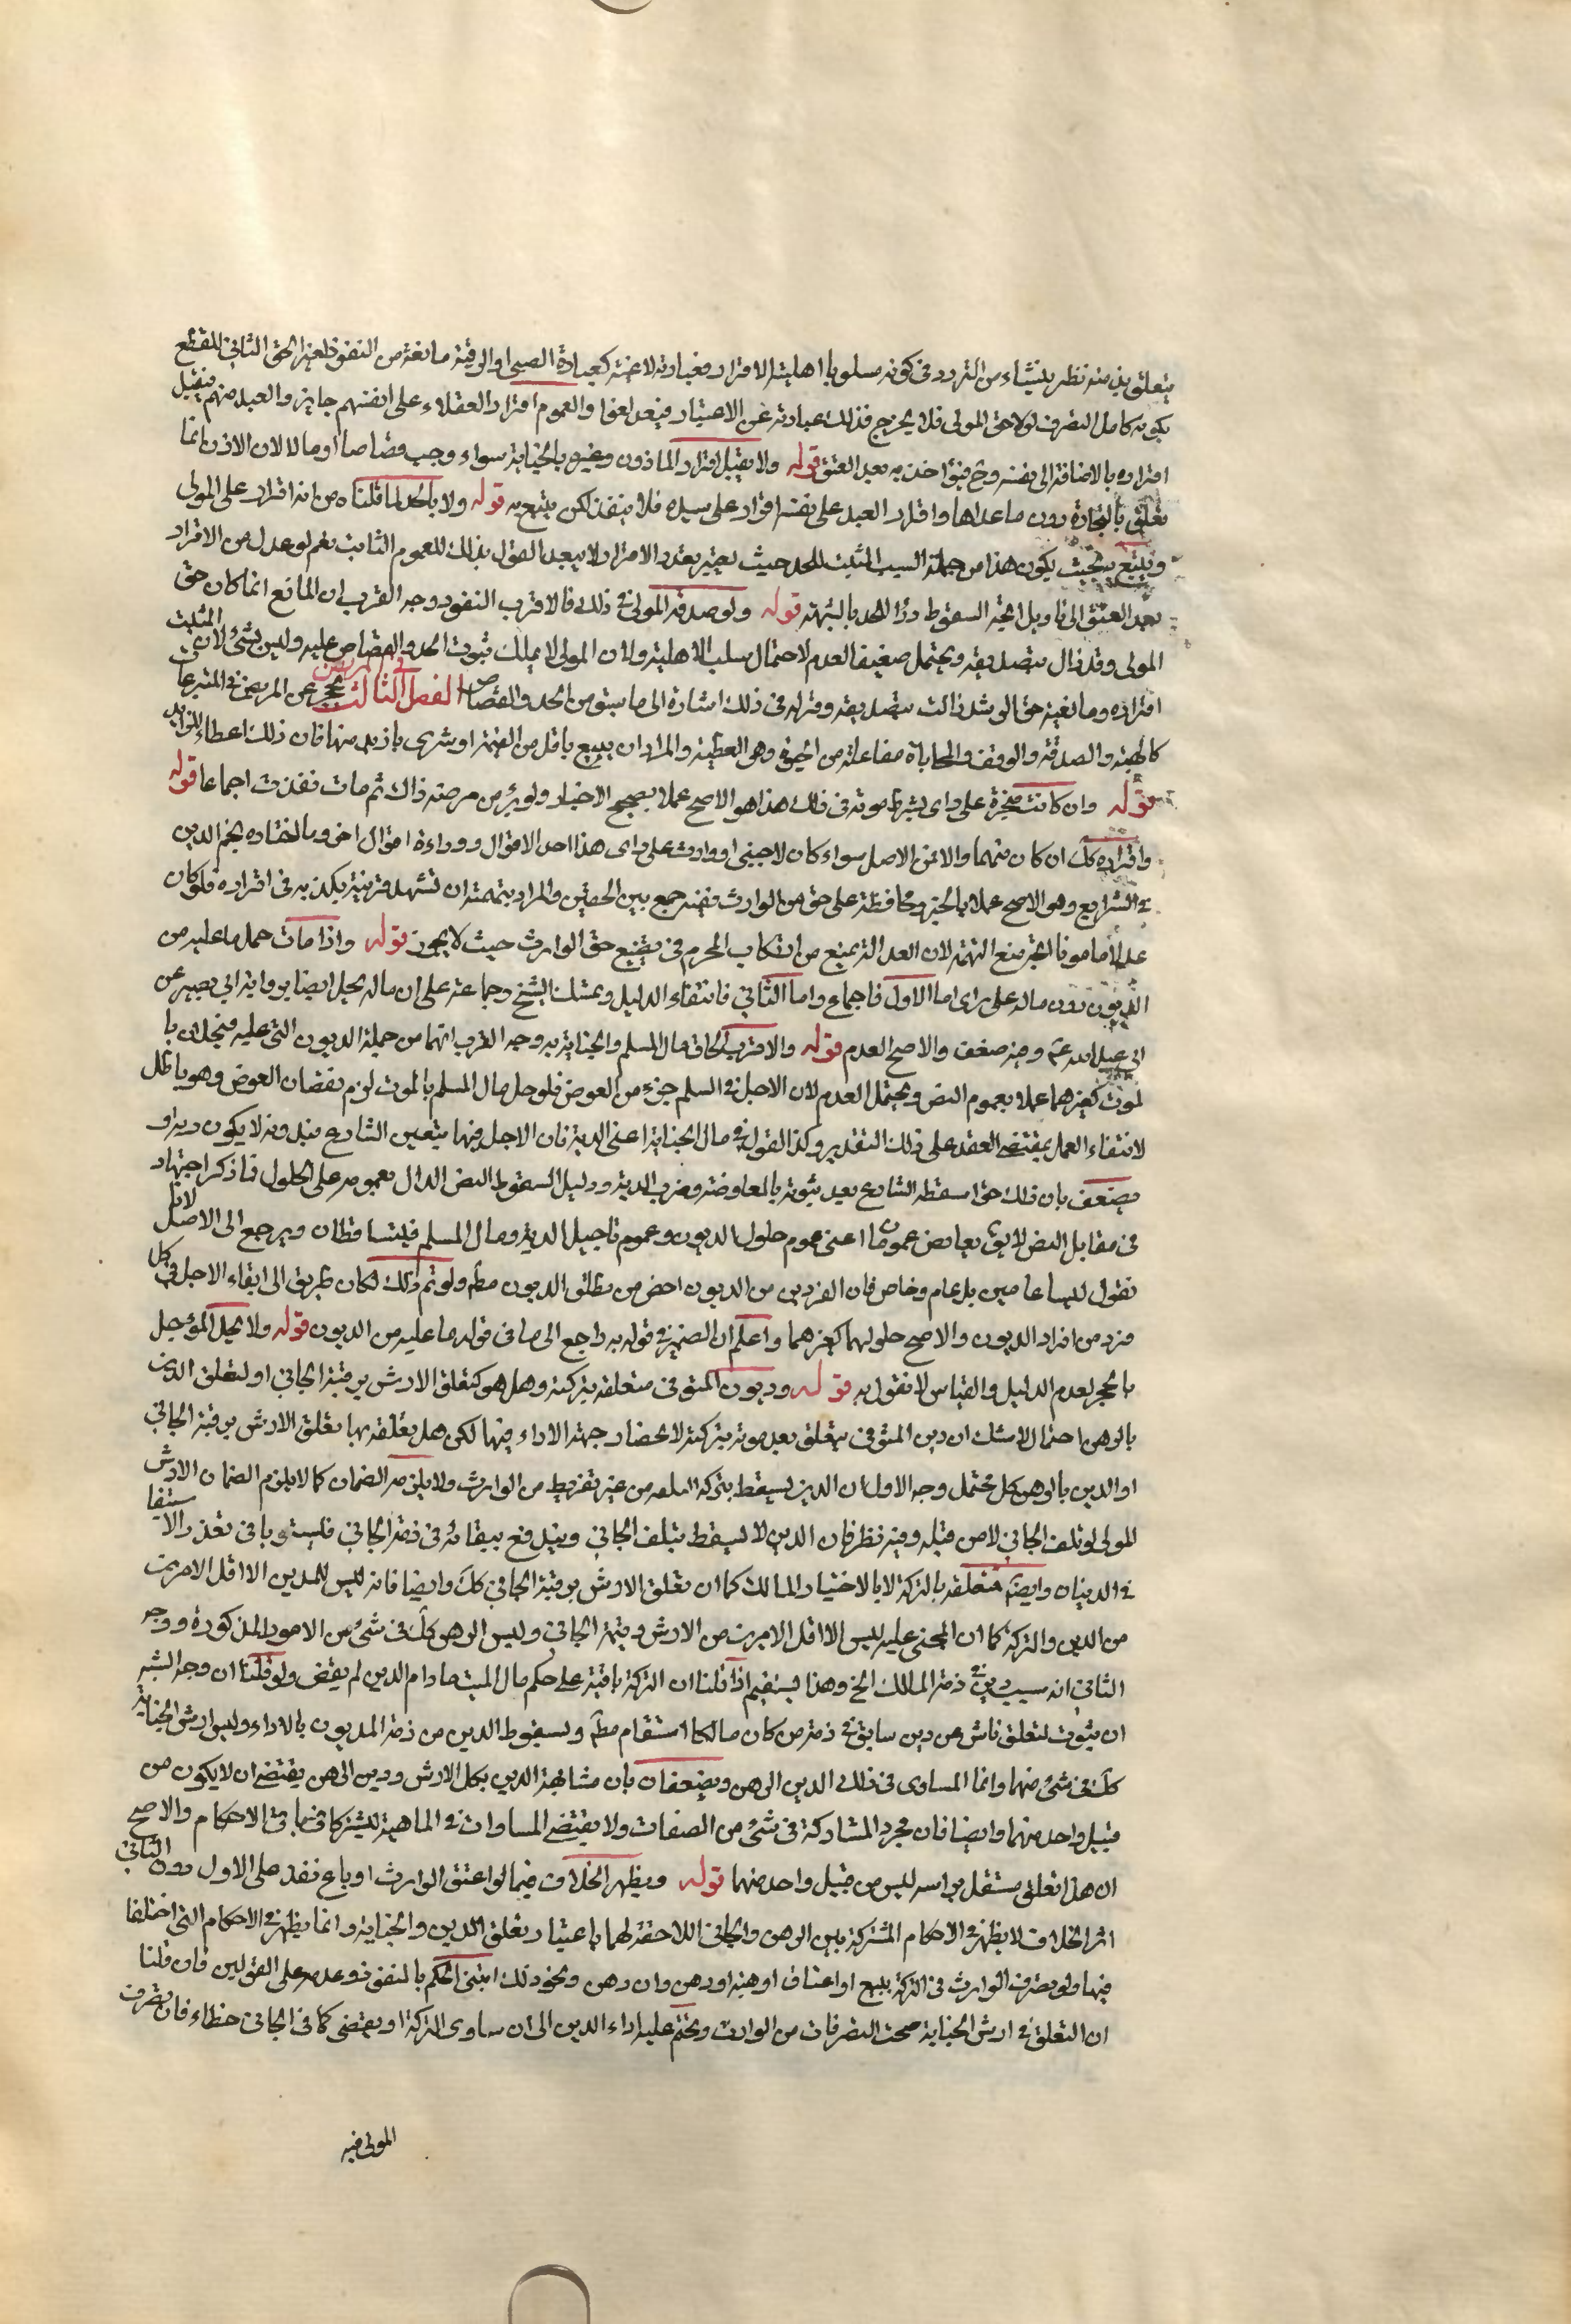 يتعلق بذمته نظر ينشاء من التردد فى كونه مسلوبا اهلية الاقرار فعبارته لاغية كعبارة الصبى او الرقية مانعة من النفوذ لغيرا لحق الثانى للقطع
بكونه كامل التصرف لولا حق المولى فلا يخرج فذلك عبارته عن الاعتبار فينعد لغوا ولعموم اقرار العقلاء على انفسهم جايز والعبد منهم فيقبل
اقراره بالاضافة الى نفسه وح فيؤاخذ به بعد العتق قوله ولا يقبل اقرار الماذون وغيره بالجناية سواء وجب قصاصا او مالا لان الاذن انما
تعلق بالتجارة دون ماعداها واقرار العبد على نفسه اقرار على سيده فلا ينفذ لكن يتبع به قوله ولا بالحد لما قلناه من انه اقرار على المولى
ويتبع بحيث يكون هذا من جملة السبب المثبت للحد حيث يعتبر تعدد الاقرار لا يبعد القول بذلك للعموم الثابت نعم لو عدل من الاقرار
بعد العتق الى تاويل اتجه السقوط درؤا للحد بالشبهة قوله ولو صدقه المولى فى ذلك فالاقرب النفوذ وجه القرب ان المانع انما كان حق
المولى وقد زال بتصديقه ويحتمل ضعيفا العدم لاحتمال سلب الاهلية ولان المولى لا يملك ثبوت الحد والقصاص عليه وليس بشئ لان المثبت
اقراره ومانعية حق المولى قد زالت بتصديقه وقوله فى ذلك اشارة الى ما سبق من الحد والقصاص الفصل الثالث المريض يحجر عن المريض فى المتبرعات
كالهبة والصدقة والوقف والمحاباة مفاعلة من الحبوة وهو العطية والمراد ان يبيع باقل من القيمة او يشترى بازيد منها فان ذلك اعطاء للزايد
قوله وان كانت منجزة على راى بشرط موته فى ذلك هذا هو الاصح عملا بصحيح الاخبار ولو برئ من مرضه ذاك ثم مات نفذت اجماعا قوله
واقراره كك ان كان متهما والا فمن الاصل سواء كان لاجنبى او وارث على راى هذا احد الاقوال ووراءه اقوال اخر وما اختاره نجم الدين
فى الشرايع وهو الاصح عملا بالخبر ومحافظة على حق الوارث ففيه جمع بين الحقين والمراد بتهمته ان تشهد قرينة بكذبه فى اقراره فلو كان
عدلا مامونا اتجه منع التهمة لان العدالة تمنع من ارتكاب المحرم فى تضييع حق الوارث حيث لا يجوز قوله واذا مات حل ما عليه من
الديون دون ماله على راى اما الاول فاجماع واما الثانى فانتفاء الدليل وتمسك الشيخ وجماعة على ان ماله يحل ايضا برواية ابى بصير عن
ابى عبد الله ع وفيه ضعف والاصح العدم قوله والاقرب الحاق مال السلم والجناية به وجه القرب انهما من جملة الديون التى عليه فيحلان با
لموت كغيرهما عملا بعموم النص ويحتمل العدم لان الاجل فى السلم جزء من العوض فلو حل مال السلم بالموت لزم نقصان العوض وهو باطل
لانتفاء العمل بمقتضى العقد على ذلك التقدير وكذا القول فى مال الجناية اعنى الدية فان الاجل فيها بتعيين الشارع فبدونه لا يكون دية و
يضعف بان ذلك حق اسقطه الشارع بعد ثبوته بالمعاوضة وضرب الدية ودليل السقوط النص الدال بعمومه على الحلول فما ذكر اجتهاد
فى مقابل النص لا يق تعارض عموما اعنى عموم حلول الديون وعموم تاجيل الدية ومال السلم فليتساقطان ويرجع الى الاصل لانا
نقول ليسا عامين بل عام وخاص فان الفردين من الديون اخص من مطلق الديون مطم ولو تم ذلك لكان طريق الى ابقاء الاجل فى كل
فرد من افراد الديون والاصح حلولهما كغيرهما واعلم ان الضمير فى قوله به راجع الى ما فى قوله ما عليه من الديون قوله ولا يحل المؤجل
بالحجر لعدم الدليل والقياس لا نقول به قوله وديون المتوفى متعلقة بتركته وهل هو كتعلق الارش برقبة الجانى او كتعلق الدين
بالرهن احتمال لا شك ان دين المتوفى يتعلق بعد موته بتركته لانحصار جهة الاداء فيها لكن هل تعلقه بها تعلق الارش برقبة الجانى
او الدين بالرهن كل محتمل وجه الاول ان الدين يسقط بتركه التلف من غير تفريط من الوارث ولا يلزمه الضمان كما لا يلزم الضمان الارش
المولى لو تلف الجانى لا من قبله وفيه نظر فان الدين لا يسقط بتلف الجانى ويندفع ببقائه فى ذمة الجانى فليستويا فى تعذر الاستيفا
فى الدينان وايضا متعلقه بالتركة لا بالاختيار المالك كما ان تعلق الارش برقبة الجانى كك وايضا فانه ليس للمدين الا اقل الامرين
من الدين والتركة كما ان المجنى عليه ليس الا اقل الامرين من الارش وقيمة الجانى وليس الرهن كك فى شئ من الامور المذكورة ووجه
الثانى انه سبب دين فى ذمة المالك الخ وهذا يستقيم اذا قلنا ان التركة باقية على حكم مال الميت مادام الدين لم يقض ولو قلنا ان وجه الشبه
ان ثبوت لتعلق ناش عن دين سابق فى ذمة من كان مالكا استقام مطم ولسقوط الدين من ذمة المديون بالاداء وليس ارش الجناية
كك فى شئ منهما وانما المساوى فى ذلك الدين الرهن ويضعفان بان مشابهة الدين بكل الارش ودين الرهن يقتضى ان لا يكون من
قبيل واحد منهما وايضا فان مجرد المشاركة فى شئ من الصفات ولا يقتضى المساوات فى الماهية ليشتركا فى باقى الاحكام والاصح
ان هذا تعلق مستقل براسه ليس من قبيل واحد منهما قوله ويظهر الخلاف فيما لو اعتق الوارث او باع نفذ على الاول دون الثانى
اثر الخلاف لا يظهر فى الاحكام المشتركة بين الرهن والجانى اللاحقة لهما باعتبار تعلق الدين والجناية وانما يظهر فى الاحكام التى اختلفا
فيها ولو تصرف الوارث فى التركة ببيع او اعتاق او هبة او رهن وان رهن ونحو ذلك ابتنى الحكم بالنفوذ وعدمه على القولين فان قلنا
ان التعلق فى ارش الجناية صحت التصرفات من الوارث وتحتم عليه اداء الدين الى ان ساوى التركة او يقضى كما فى الجانى خطاء فان تصرف
المولى فيه